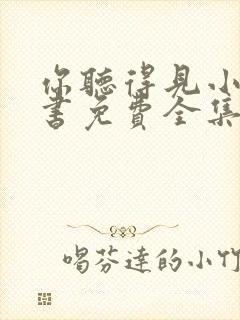 你聽得見小
書免費全集
喝芬達的小竹